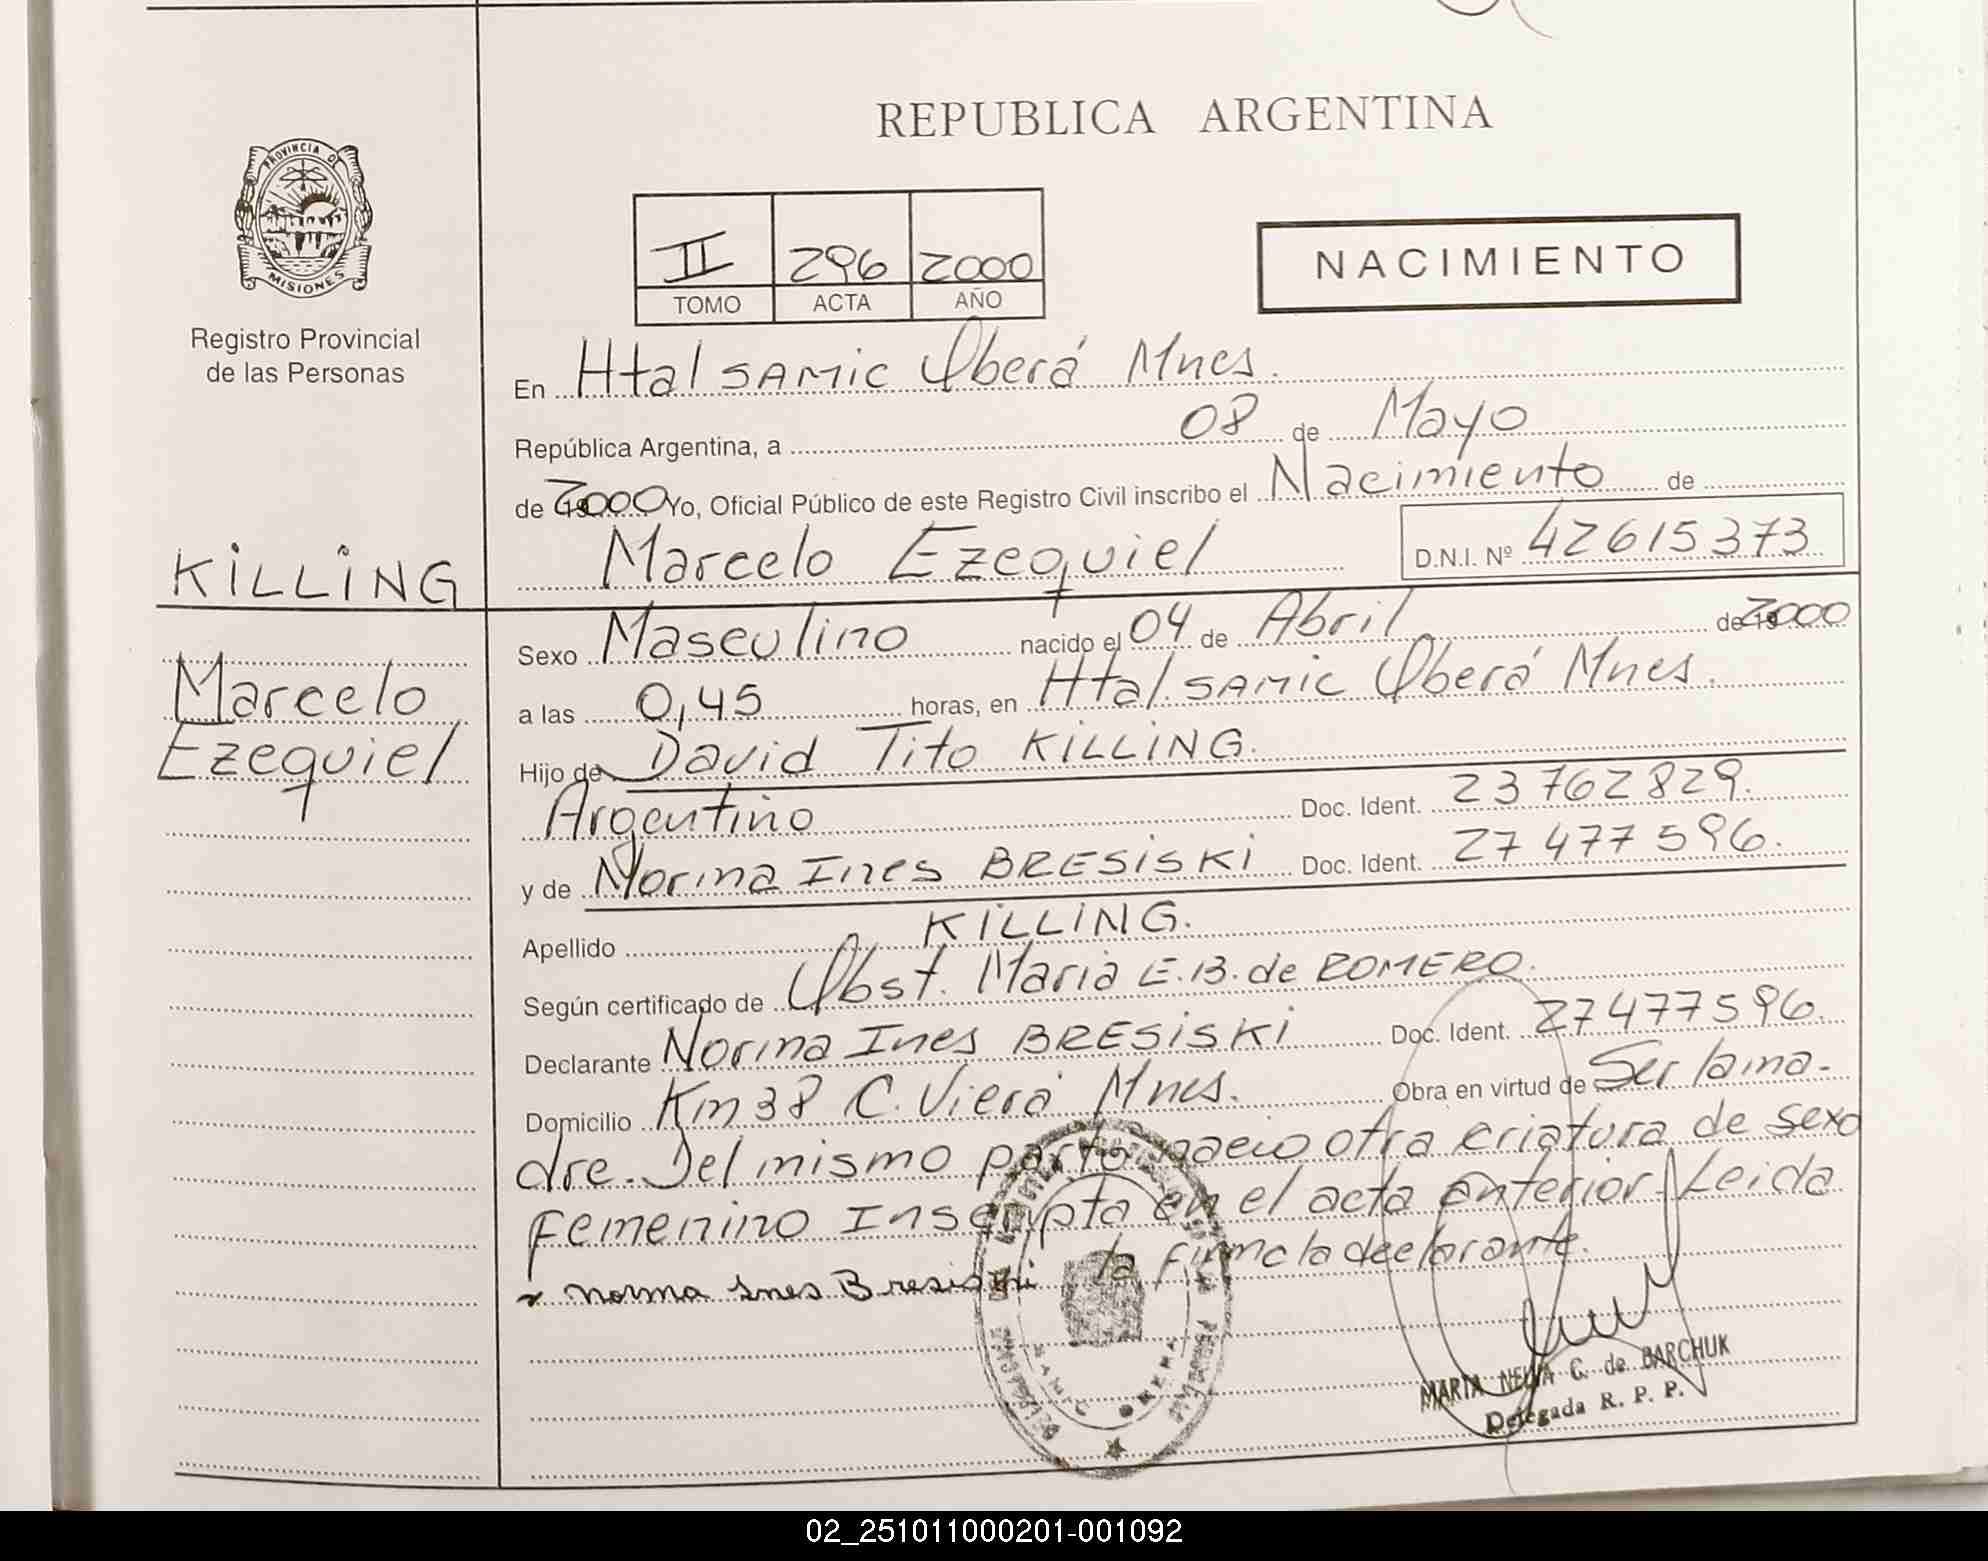 REPUBLICA ARGENTINA
PROVINCIA D
MISIONES
Registro Provincial
de las Personas
II 296 2000
TOMO ACTA AÑO
NACIMIENTO
En Htal SAMIC Oberá Mnes.
República Argentina, a 08 de Mayo
de 2000 Yo, Oficial Público de este Registro Civil inscribo el Nacimiento de
Marcelo Ezequiel D.N.I. Nº 42615373
KILLING
Marcelo
Ezequiel
Sexo Masculino nacido el 04 de Abril de 2000
a las 0,45 horas, en Htal. SAMIC Oberá Mnes.
Hijo de David Tito KILLING.
Argentino Doc. Ident. 23762829.
y de Norma Ines BRESISKI Doc. Ident. 27477596.
Apellido KILLING.
Según certificado de Obst. Maria E.B. de ROMERO.
Declarante Norma Ines BRESISKI Doc. Ident. 27477596.
Domicilio Km 38 C. Viera Mnes. Obra en virtud de Ser la ma-
dre. Del mismo parto nacio otra criatura de sexo
femenino Inscripta en el acta anterior. Leida
la firma la declarante.
x Norma Ines Bresiski
MARTA NELVA C. de BARCHUK
Delegada R. P. P.
02_251011000201-001092